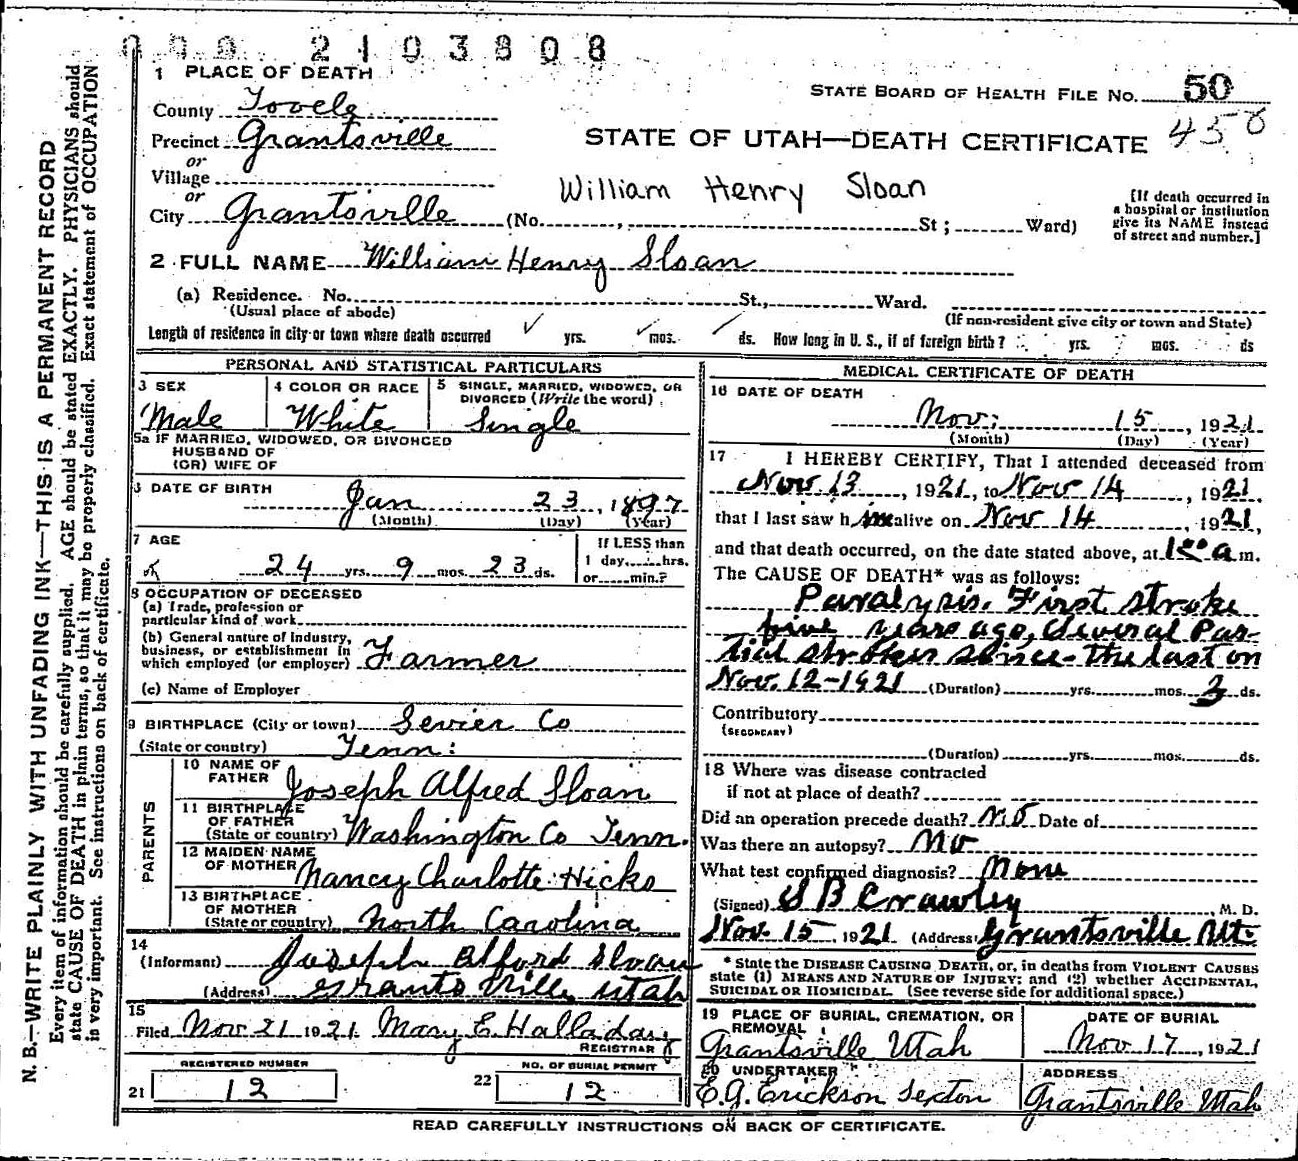 000 2103808
1 PLACE OF DEATH
STATE BOARD OF HEALTH FILE NO. 50
County Tooele
458
Precinct Grantsville
STATE OF UTAH—DEATH CERTIFICATE
or
Village
William Henry Sloan
or
City Grantsville (No. , St; Ward)
[If death occurred in a hospital or institution give its NAME instead of street and number.]
2 FULL NAME William Henry Sloan
(a) Residence. No. St., Ward.
(Usual place of abode)
(If non-resident give city or town and State)
Length of residence in city or town where death occurred ✓ yrs. ✓ mos. ✓ ds. How long in U. S., if of foreign birth? yrs. mos. ds
PERSONAL AND STATISTICAL PARTICULARS
3 SEX
Male
4 COLOR OR RACE
White
5 SINGLE, MARRIED, WIDOWED, OR
DIVORCED (Write the word)
Single
5a IF MARRIED, WIDOWED, OR DIVORCED
HUSBAND OF
(OR) WIFE OF
6 DATE OF BIRTH Jan 23, 1897
(Month) (Day) (Year)
7 AGE
24 yrs. 9 mos. 23 ds.
If LESS than
1 day, hrs.
or min.?
8 OCCUPATION OF DECEASED
(a) Trade, profession or
particular kind of work
(b) General nature of industry,
business, or establishment in
which employed (or employer) Farmer
(c) Name of Employer
9 BIRTHPLACE (City or town) Sevier Co
(State or country) Tenn:
PARENTS
10 NAME OF
FATHER Joseph Alfred Sloan
11 BIRTHPLACE
OF FATHER
(State or country) Washington Co Tenn.
12 MAIDEN NAME
OF MOTHER Nancy Charlotte Hicks
13 BIRTHPLACE
OF MOTHER
(State or country) North Carolina
14
(Informant) Joseph Alford Sloan
(Address) Grantsville Utah
15
Filed Nov 21 1921 Mary E. Halladay
REGISTRAR
REGISTERED NUMBER
21 12
NO. OF BURIAL PERMIT
22 12
MEDICAL CERTIFICATE OF DEATH
16 DATE OF DEATH
Nov: 15, 1921
(Month) (Day) (Year)
17 I HEREBY CERTIFY, That I attended deceased from
Nov. 13, 1921, to Nov 14, 1921
that I last saw him alive on Nov 14, 1921,
and that death occurred, on the date stated above, at a m.
The CAUSE OF DEATH* was as follows:
Paralysis. First stroke
five years ago, several Par-
tial strokes since - the last on
Nov. 12-1921 (Duration) yrs. mos. 3 ds.
Contributory
(SECONDARY)
(Duration) yrs. mos. ds.
18 Where was disease contracted
if not at place of death?
Did an operation precede death? No Date of
Was there an autopsy? No
What test confirmed diagnosis? None
(Signed) S B Crawley M. D.
Nov. 15, 1921 (Address) Grantsville Ut.
* State the DISEASE CAUSING DEATH, or, in deaths from VIOLENT CAUSES
state (1) MEANS AND NATURE OF INJURY; and (2) whether ACCIDENTAL,
SUICIDAL OR HOMICIDAL. (See reverse side for additional space.)
19 PLACE OF BURIAL, CREMATION, OR
REMOVAL
Grantsville Utah
DATE OF BURIAL
Nov 17, 1921
20 UNDERTAKER
E.G. Erickson Sexton
ADDRESS
Grantsville Utah
READ CAREFULLY INSTRUCTIONS ON BACK OF CERTIFICATE.
N. B.—WRITE PLAINLY WITH UNFADING INK—THIS IS A PERMANENT RECORD
Every item of information should be carefully supplied. AGE should be stated EXACTLY. PHYSICIANS should
state CAUSE OF DEATH in plain terms, so that it may be properly classified. Exact statement of OCCUPATION
is very important. See instructions on back of certificate.